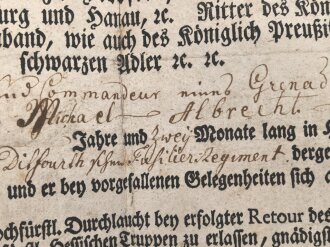 burg und Hanau, ꝛc. Ritter des Köni
band, wie auch des Königlich Preußi
schwarzen Adler ꝛc. ꝛc.
und Commandeur eines Grenad
Michael Albrecht
Jahre und zwey Monate lang in H
Dittfurth schen Füsilier Regiment. derge
und er bey vorgefallenen Gelegenheiten sich a
ochfürstl. Durchlaucht bey erfolgter Retour des
Hessischen Truppen zu erlassen, gnädig